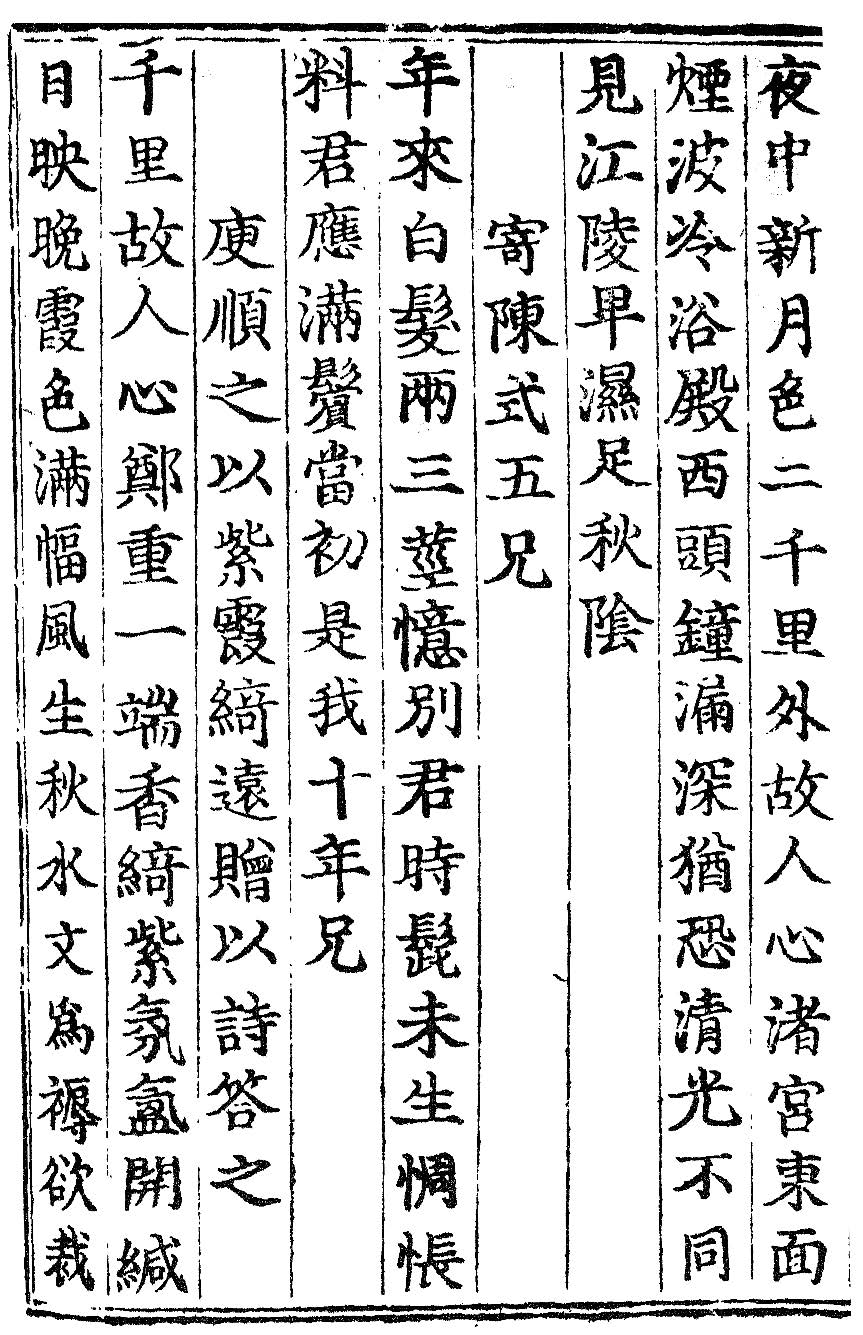 夜中新月色二千里外故人心渚宮東面
煙波冷浴殿西頭鐘漏深猶恐清光不同
見江陵早濕足秋陰
寄陳式五兄
年來白髮兩三莖憶別君時髭未生惆悵
料君應滿鬢當初是我十年兄
庾順之以紫霞綺遠贈以詩答之
千里故人心鄭重一端香綺紫氛氳開緘
日映晚霞色滿幅風生秋水文爲褥欲裁